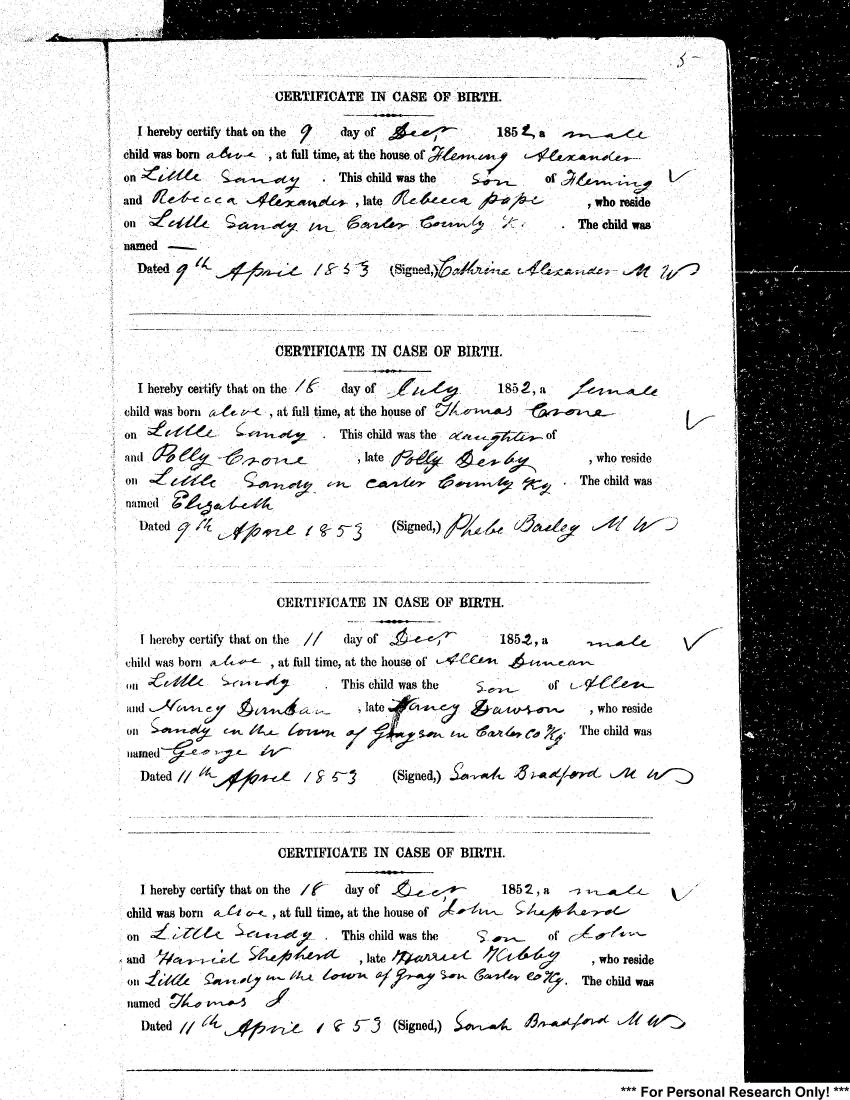 5-
CERTIFICATE IN CASE OF BIRTH.
I hereby certify that on the 9 day of Decr 1852, a male
child was born alive, at full time, at the house of Fleming Alexander
on Little Sandy. This child was the son of Fleming
and Rebecca Alexander, late Rebecca pope, who reside
on Little Sandy in Carter County K. The child was
named —
Dated 9th April 1853 (Signed,) Cathrine Alexander M W
CERTIFICATE IN CASE OF BIRTH.
I hereby certify that on the 18 day of July 1852, a female
child was born alive, at full time, at the house of Thomas Crone
on Little Sandy. This child was the daughter of
and Polly Crone, late Polly Derby, who reside
on Little Sandy in carter County Ky. The child was
named Elizabeth
Dated 9th April 1853 (Signed,) Phebe Bailey M W
CERTIFICATE IN CASE OF BIRTH.
I hereby certify that on the 11 day of Decr 1852, a male
child was born alive, at full time, at the house of Allen Duncan
on Little Sandy. This child was the son of Allen
and Nancy Duncan, late Nancy Dawson, who reside
on Sandy in the town of Grayson in Carter Co Ky The child was
named George W
Dated 11th April 1853 (Signed,) Sarah Bradford M W
CERTIFICATE IN CASE OF BIRTH.
I hereby certify that on the 18 day of Decr 1852, a male
child was born alive, at full time, at the house of John Shepherd
on Little Sandy. This child was the son of John
and Harriel Shepherd, late Harriel Kibby, who reside
on Little Sandy in the town of Grayson Carter Co Ky. The child was
named Thomas J
Dated 11th April 1853 (Signed,) Sarah Bradford M W
*** For Personal Research Only! ***